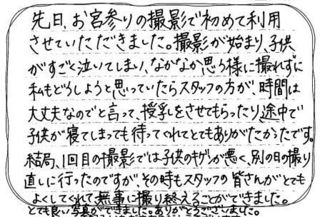 先日、お宮参りの撮影で初めて利用
させていただきました。撮影が始まり、子供
がすごと泣いてしまい、なかなか思う様に撮れずに
私もどうしようと思っていたらスタッフの方が、時間は
大丈夫なのでと言って、授乳をさせてもらったり、途中で
子供が寝てしまっても待っててくれてとてもありがたかったです。
結局、1回目の撮影では子供のキゲンが悪く、別の日の撮り
直しに行ったのですが、その時もスタッフの皆さんがとても
よくしてくれて無事に撮り終えることができました。
とても良い写真ができました。ありがとうございました。